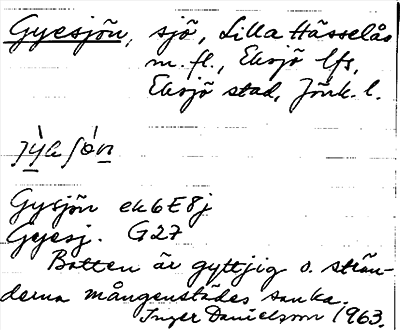 Gyesjön, sjö, Lilla Hässelås
m. fl., Eksjö lfs,
Eksjö stad, Jönk. l.
Gysjön ek6E8j
Gyesj. G27
Botten är gyttjig o. strän-
derna mångenstädes sanka.
Inger Danielsson 1963.